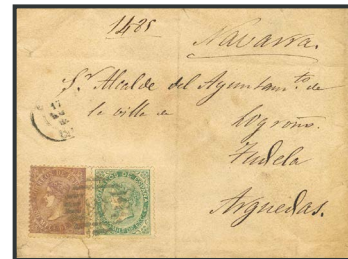 1485
Navarra.
Sr Alcalde del Ayuntamto de
la villa de
Logroño.
Tudela
Arguedas.
17